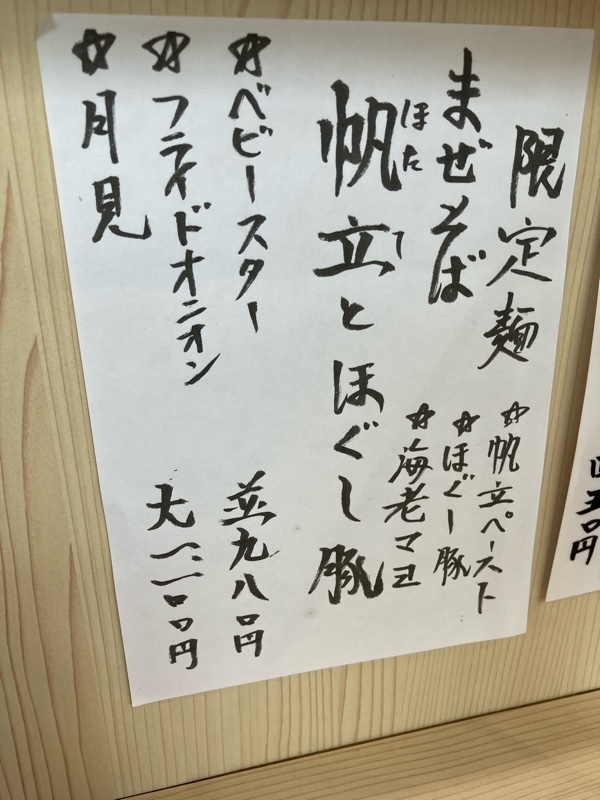 限定麺
まぜそば
☆帆立ペースト
☆ほぐし豚
☆海老マヨ
ほたて
帆立とほぐし豚
☆ベビースター
☆フライドオニオン
☆月見
並九八〇円
大一、一〇〇円
五〇円